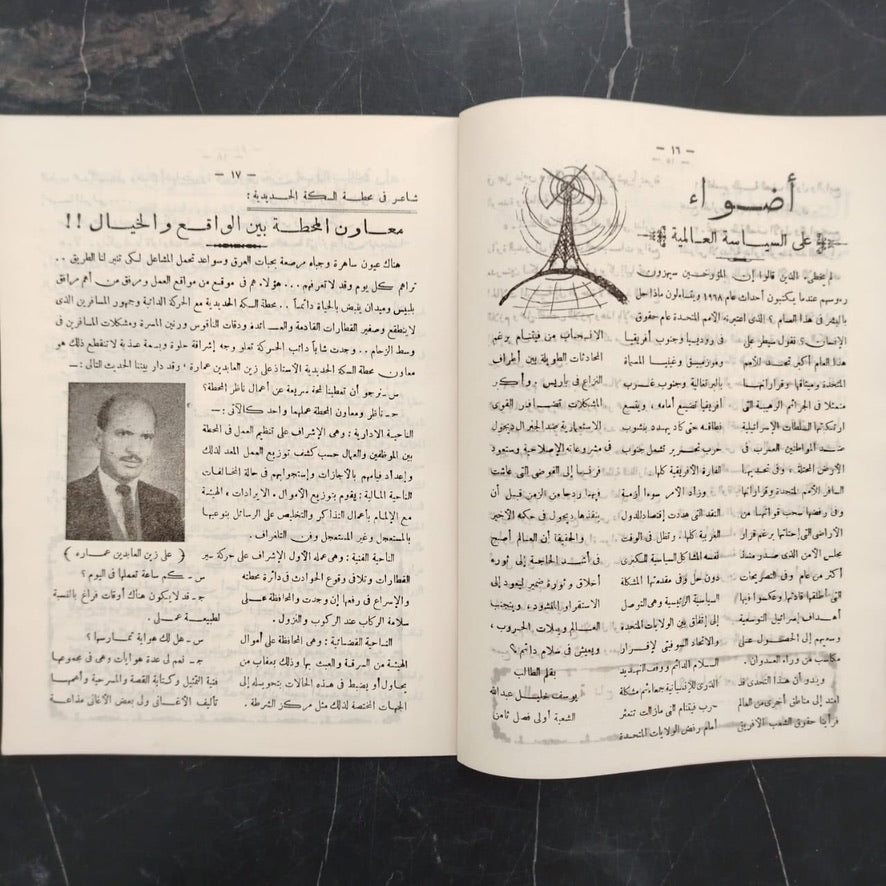 — ١٦ —
أضــواء
على السياسة العالمية
لم يخطىء الذين قالوا إن المؤرخين سيهزون
رءوسهم عندما يكتبون أحداث عام ١٩٦٨ ويتساءلون ماذا حل
بالبشر فى هذا العام ؟ الذى اعتبرته الأمم المتحدة عام حقوق
الإنسان ؟ فقول سيطر على
هذا العام أكبر تحد للأمم
المتحدة وميثاقها وقراراتها
متمثلا فى الجرائم الرهيبة التى
ارتكبتها السلطات الإسرائيلية
ضد المواطنين العرب فى
الأرض المحتلة ، وفى تحديها
السافر للأمم المتحدة وقراراتها
وفى رفضها سحب قواتها من
الأراضى التى إحتلتها برغم قرار
مجلس الأمن الذى صدر منذ
أكثر من عام وفى التصريحات
التى أطلقها قادتها وعكسوا فيها
أهداف إسرائيل التوسعية
وسعيهم إلى الحصول على
مكاسب من وراء العدوان .
ويبدو أن هذا التحدى قد
امتد إلى مناطق أخرى من العالم
فرأينا حقوق الشعب الافريقى
فى روديسيا وجنوب أفريقيا
وموزمبيق وغينيا المسماة
بالبرتغالية وجنوب غرب
أفريقيا تضيع أمامه ، ويتسع
نطاقه حتى كاد يهدد بنشوب
حرب تحرير تشمل جنوب
القارة الأفريقية كلها .
وزاد الأمر سوءا أزمة
النقد التى هددت إقتصاد الدول
الغربية كلها . وتظل فى الوقت
نفسه المشاكل السياسية الكبرى
دون حل وفى مقدمتها المشكلة
السياسية الرئيسية وهى التوصل
إلى إتفاق بين الولايات المتحدة
والاتحاد السوفيتى لإقرار
السلام الدائم ووقف التهديد
الذرى للإنسانية جمعاء ثم مشكلة
حرب فيتنام التى مازالت تتعثر
أمام رفض الولايات المتحدة
الانسحاب من فيتنام برغم
المحادثات الطويلة بين أطراف
النزاع فى باريس . وأكبر
المشكلات تضافر القوى
الاستعمارية ضد الجنرال ديجول
فى مشروعاته الإصلاحية وستعود
فرنسا إلى الفوضى التى عاشت
فيها ردحا من الزمن قبل أن
ينقذها ديجول فى حكمه الأخير
والحقيقة أن العالم أصبح
فى أشد الحاجة إلى ثورة
أخلاق وثورة ضمير ليعود إلى
الاستقرار المنشود ، ويتجنب
العالم ويلات الحروب ،
ويعيش فى سلام دائم ؟
بقلم الطالب
يوسف خليل عبد الله
الشعبة أولى فصل ثامن
— ١٧ —
شاعر فى محطة السكة الحديدية :
معاون المحطة بين الواقع والخيال !!
هناك عيون ساهرة وجباه مرصعة بحبات العرق وسواعد تحمل المشاعل لكى تنير لنا الطريق ..
تراهم كل يوم وقد لا تعرفهم ... هؤلاء هم فى موقع من مواقع العمل ومرفق من أهم مرافق
بلبيس وميدان ينبض بالحياة دائماً .. محطة السكة الحديدية مع الحركة الدائبة وجمهور المسافرين الذى
لا ينقطع وصفير القطارات القادمة والعائدة ودقات الناقوس ورنين المسرة ومشكلات المسافرين فى
وسط الزحام .. وجدت شاباً دائب الحركة تعلو وجهه إشراقة حلوة وبسمة عذبة لا تنقطع ذلك هو
معاون محطة السكة الحديدية الأستاذ على زين العابدين عمارة ، وقد دار بيننا الحديث التالى : -
س - نرجو أن تعطينا لمحة سريعة عن أعمال ناظر المحطة؟
جـ - ناظر ومعاون المحطة عملهما واحد كالآتى : -
الناحية الادارية : وهى الإشراف على تنظيم العمل فى المحطة
بين الموظفين والعمال حسب كشف توزيع العمل المعد لذلك
وإعداد قيامهم بالأجازات وإستجوابهم فى حالة المخالفات
الناحية المالية : يقوم بتوزيع الأموال . الايرادات ، الهيئة
مع الإلمام بأعمال التذاكر والتخليص على الرسائل بنوعيها
بالمستعجل وغير المستعجل وفن التلغراف .
الناحية الفنية : وهى عمله الأول الإشراف على حركة سير
القطارات وتلافى وقوع الحوادث فى دائرة محطته
والإسراع فى رفعها إن وجدت والمحافظة على
سلامة الركاب عند الركوب والنزول .
الناحية القضائية : وهى المحافظة على أموال
الهيئة من السرقة والعبث بها وذلك بعقاب من
يحاول أو يضبط فى هذه الحالات بتحويله إلى
الجهات المختصة لذلك مثل مركز الشرطة .
( على زين العابدين عماره )
س - كم ساعة تعملها فى اليوم ؟
جـ - قد لا يكون هناك أوقات فراغ بالنسبة
لطبيعة عملى .
س - هل لك هواية تمارسها ؟
جـ - نعم لى عدة هوايات وهى فى مجموعها
فنية التمثيل وكتابة القصة والمسرحية وأهمها
تأليف الأغانى ولى بعض الأغانى مذاعة